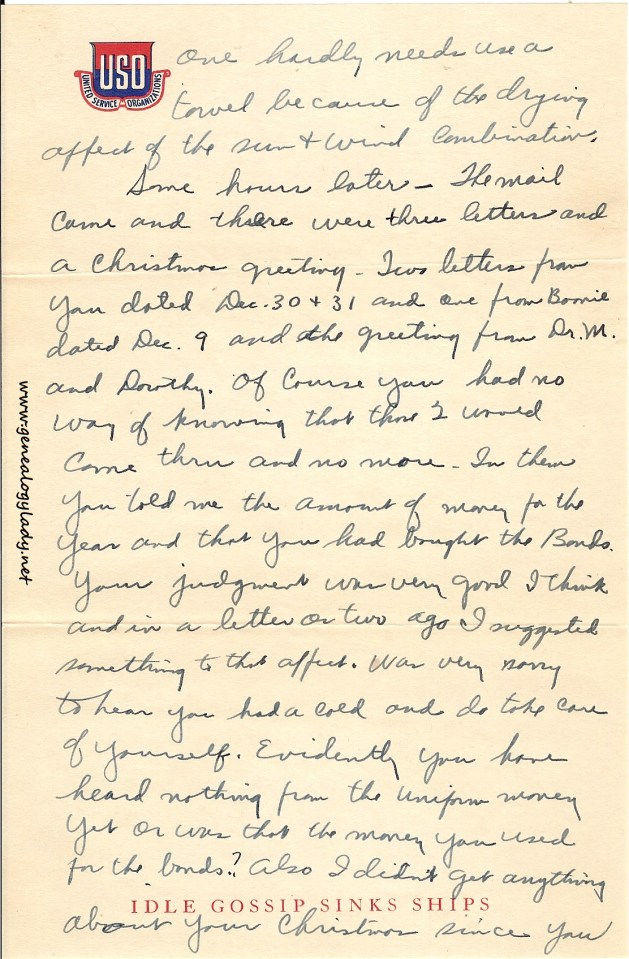 USO
UNITED SERVICE ORGANIZATIONS
One hardly needs use a
towel because of the drying
affect of the sun & wind combination.
Some hours later – The mail
came and there were three letters and
a Christmas greeting – Two letters from
you dated Dec. 30 & 31 and one from Bonnie
dated Dec. 9 and the greeting from Dr. M.
and Dorothy. Of Course you had no
way of knowing that those 2 would
come thru and no more – In them
you told me the amount of money for the
year and that you had bought the Bonds.
Your judgment was very good I think
and in a letter or two ago I suggested
something to that affect. Was very sorry
to hear you had a cold and do take care
of yourself. Evidently you have
heard nothing from the uniform money
yet or was that the money you used
for the bonds? Also I didn't get anything
IDLE GOSSIP SINKS SHIPS
about your Christmas since you
www.genealogylady.net